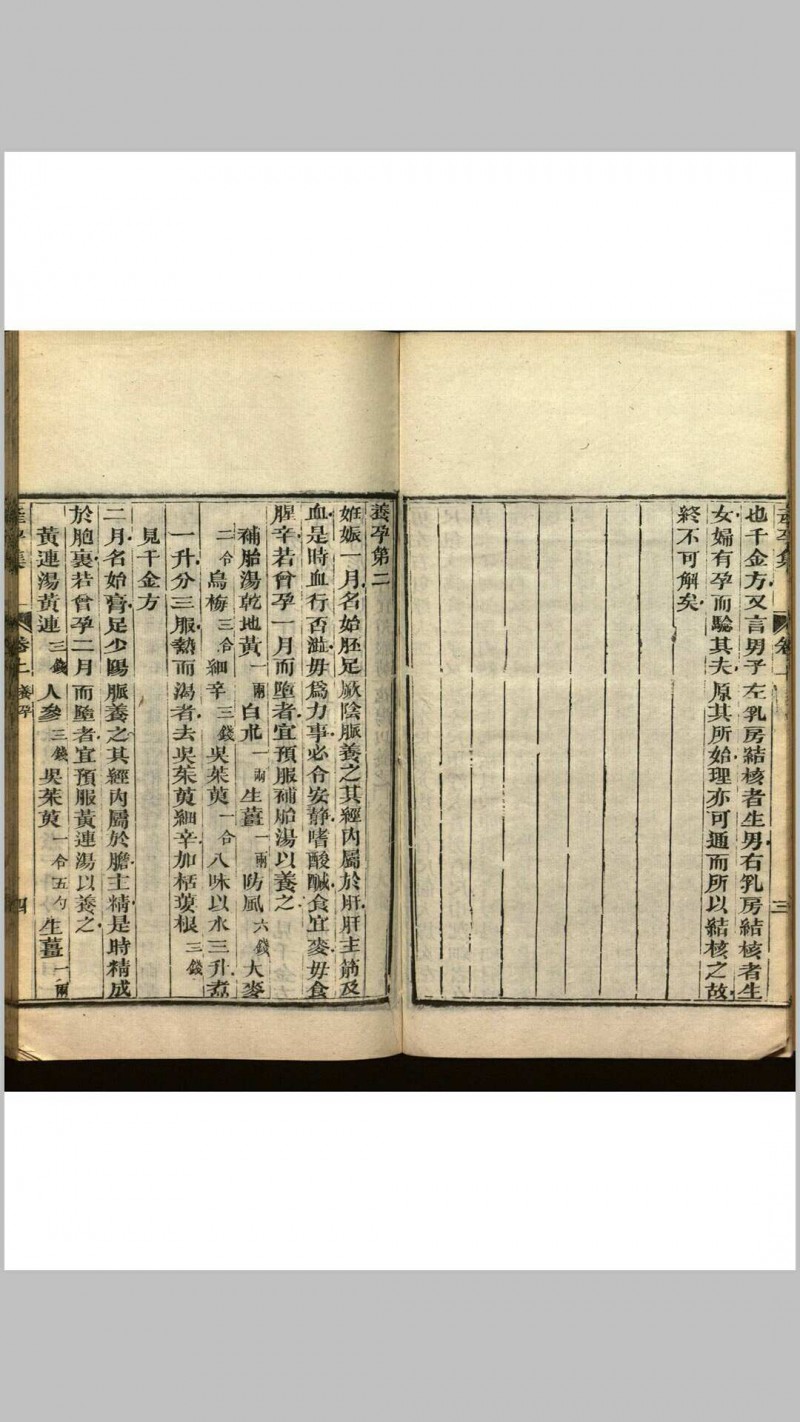 也千金方又言男子左乳房結核者生男右乳房結核者生
女婦有孕而驗其夫原其所始理亦可通而所以結核之故
終不可解矣
三
養孕第二
妊娠一月名始胚足厥陰脈養之其經內屬於肝肝主筋及
血是時血行否澁毋爲力事必令安靜嗜酸鹹食宜麥毋食
腥辛若曾孕一月而墮者宜預服補胎湯以養之
補胎湯乾地黃一兩白朮一兩生薑一兩防風六錢大麥
二合烏梅三合細辛三錢吳茱萸一合八味以水三升煮
一升分三服熱而渴者去吳茱萸細辛加栝蔞根三錢
見千金方
二月名始膏足少陽脈養之其經內屬於膽主精是時精成
於胞裏若曾孕二月而墮者宜預服黃連湯以養之
黃連湯黃連三錢人參三錢吳茱萸一合五勺生薑一兩
產孕集 卷上 養孕 四